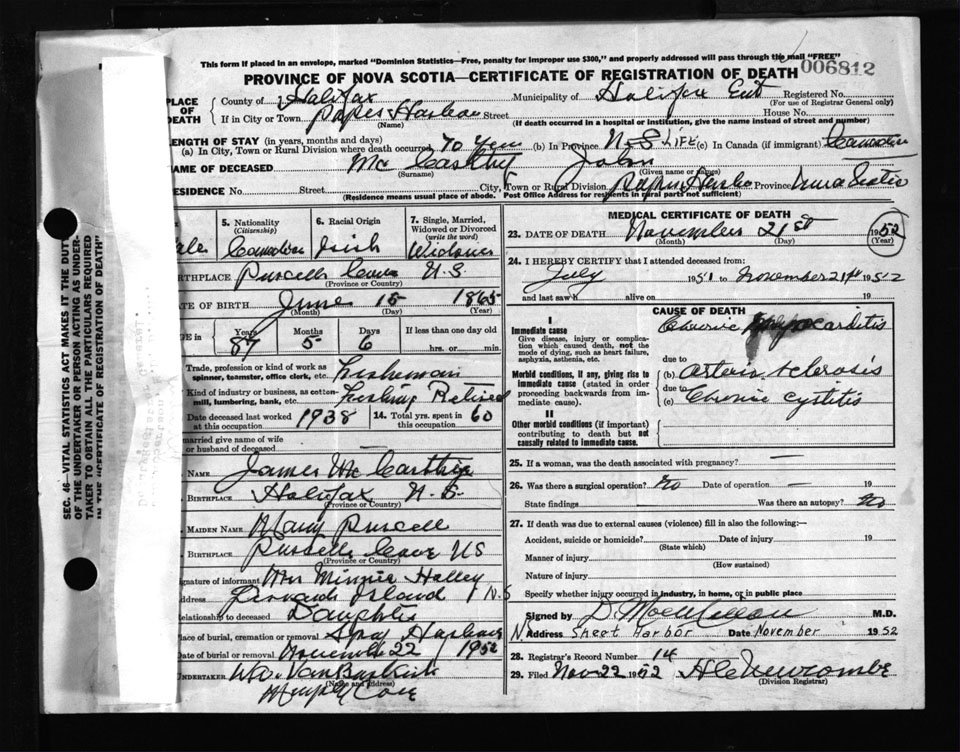 This form if placed in an envelope, marked "Dominion Statistics—Free, penalty for improper use $300," and properly addressed will pass through the mail "FREE"
PROVINCE OF NOVA SCOTIA—CERTIFICATE OF REGISTRATION OF DEATH
006812
PLACE OF DEATH
County of Halifax Municipality of Halifax Registered No.
(For use of Registrar General only)
If in City or Town Harbour Street House No.
(Name) (If death occurred in a hospital or institution, give the name instead of street and number)
LENGTH OF STAY (in years, months and days)
(a) In City, Town or Rural Division where death occurred (b) In Province N-S LIFE (c) In Canada (if immigrant) Canadian
NAME OF DECEASED Mc Carthy John
(Surname) (Given name or names)
RESIDENCE No. Street City, Town or Rural Division Province Nova Scotia
(Residence means usual place of abode. Post Office Address for residents in rural parts not sufficient)
5. Nationality (Citizenship) 6. Racial Origin 7. Single, Married, Widowed or Divorced (write the word)
ale Canadian Irish Widower
BIRTHPLACE Purcells Cove N.S.
(Province or Country)
ATE OF BIRTH June 15 1865
(Month) (Day) (Year)
GE in Years Months Days If less than one day old
87 5 6 hrs. or min.
Trade, profession or kind of work as spinner, teamster, office clerk, etc. Fisherman
Kind of industry or business, as cotton-mill, lumbering, bank, etc. Fishing Retired
Date deceased last worked at this occupation 1938 14. Total yrs. spent in this occupation 60
married give name of wife or husband of deceased —
NAME James Mc Carthy
BIRTHPLACE Halifax N.S.
(Province or Country)
MAIDEN NAME Mary Purcell
BIRTHPLACE Purcells Cove NS
(Province or Country)
gnature of informant Mrs Minnie Halley
ddress Island N.S
elationship to deceased Daughter
lace of burial, cremation or removal Spry Harbour
Date of burial or removal November 22 1952
UNDERTAKER Van Buskirk
(Name and address)
Cove
SEC. 46—VITAL STATISTICS ACT MAKES IT THE DUTY
OF THE UNDERTAKER OR PERSON ACTING AS UNDER-
TAKER TO OBTAIN ALL THE PARTICULARS REQUIRED
IN THE "CERTIFICATE OF REGISTRATION OF DEATH"
MEDICAL CERTIFICATE OF DEATH
23. DATE OF DEATH November 21st 1952
(Month) (Day) (Year)
24. I HEREBY CERTIFY that I attended deceased from:
July 1951 to November 21st 1952
and last saw h alive on 19
CAUSE OF DEATH
I
Immediate cause
Give disease, injury or complication which caused death, not the mode of dying, such as heart failure, asphyxia, asthenia, etc.
Chronic Myocarditis
due to
Morbid conditions, if any, giving rise to immediate cause (stated in order proceeding backwards from immediate cause).
(b) arterio sclerosis
due to
(c) Chronic cystitis
II
Other morbid conditions (if important) contributing to death but not causally related to immediate cause.
25. If a woman, was the death associated with pregnancy? —
26. Was there a surgical operation? no Date of operation — 19
State findings Was there an autopsy? no
27. If death was due to external causes (violence) fill in also the following:—
Accident, suicide or homicide? Date of injury 19
(State which)
Manner of injury
(How sustained)
Nature of injury
Specify whether injury occurred in industry, in home, or in public place
Signed by M.D.
Address Sheet Harbor Date November 1952
28. Registrar's Record Number 14
29. Filed Nov 22 1952 Newcombe
(Division Registrar)